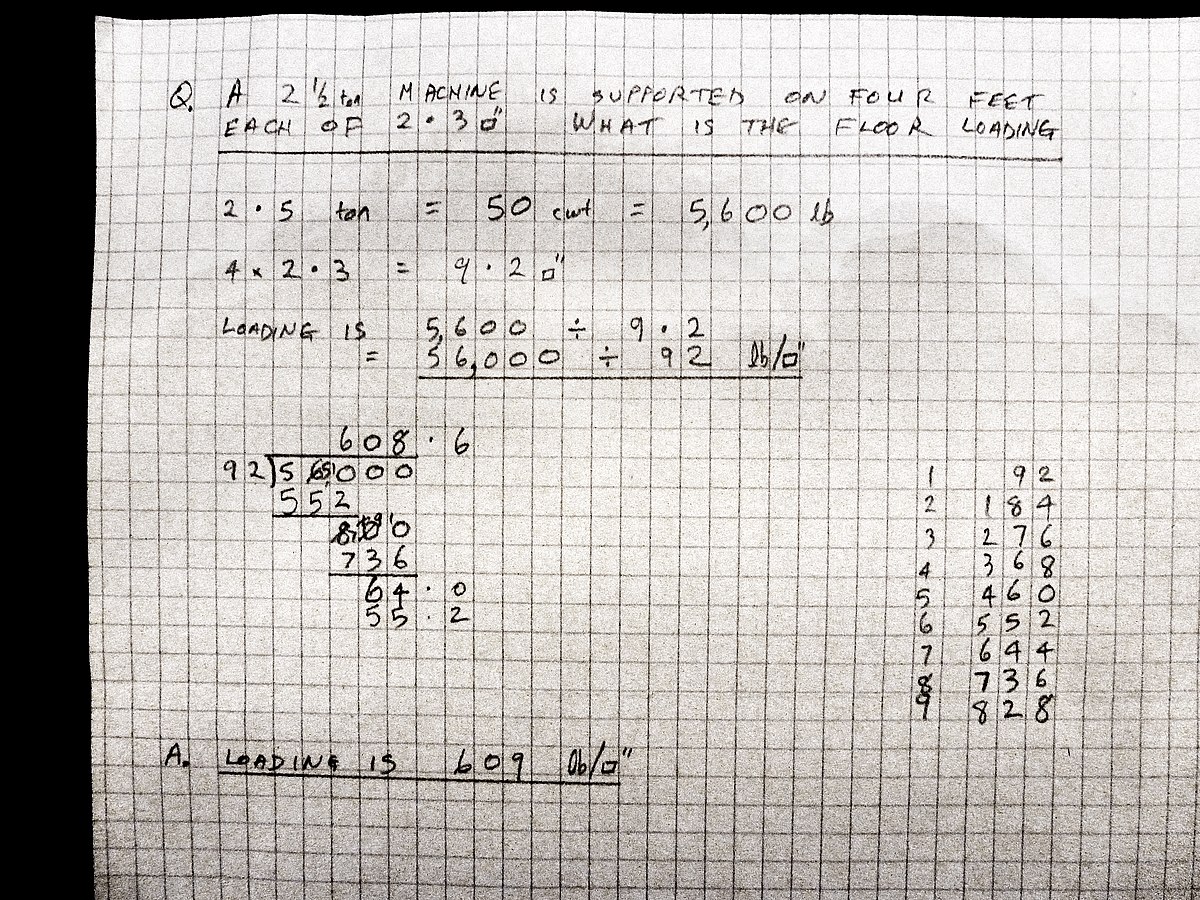 Q. A 2 ½ ton MACHINE IS SUPPORTED ON FOUR FEET
EACH OF 2·3 □" WHAT IS THE FLOOR LOADING
2·5 ton = 50 cwt = 5,600 lb
4 × 2·3 = 9·2 □"
LOADING IS 5,600 ÷ 9·2
= 56,000 ÷ 92 lb/□"
608·6
92)56000
552
800
736
64·0
55·2
1 92
2 184
3 276
4 368
5 460
6 552
7 644
8 736
9 828
A. LOADING IS 609 lb/□"